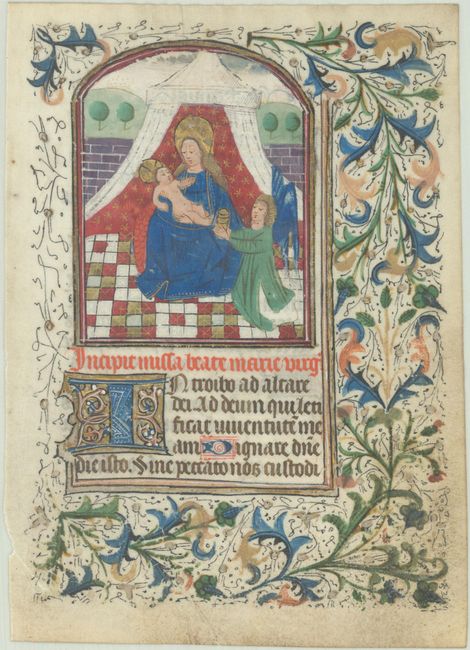 Incipit missa beate marie virg
Introibo ad altare
dei. Ad deum qui leti
ficat iuventute me
am Dignare dñe
die isto. Sine peccato nos custodi